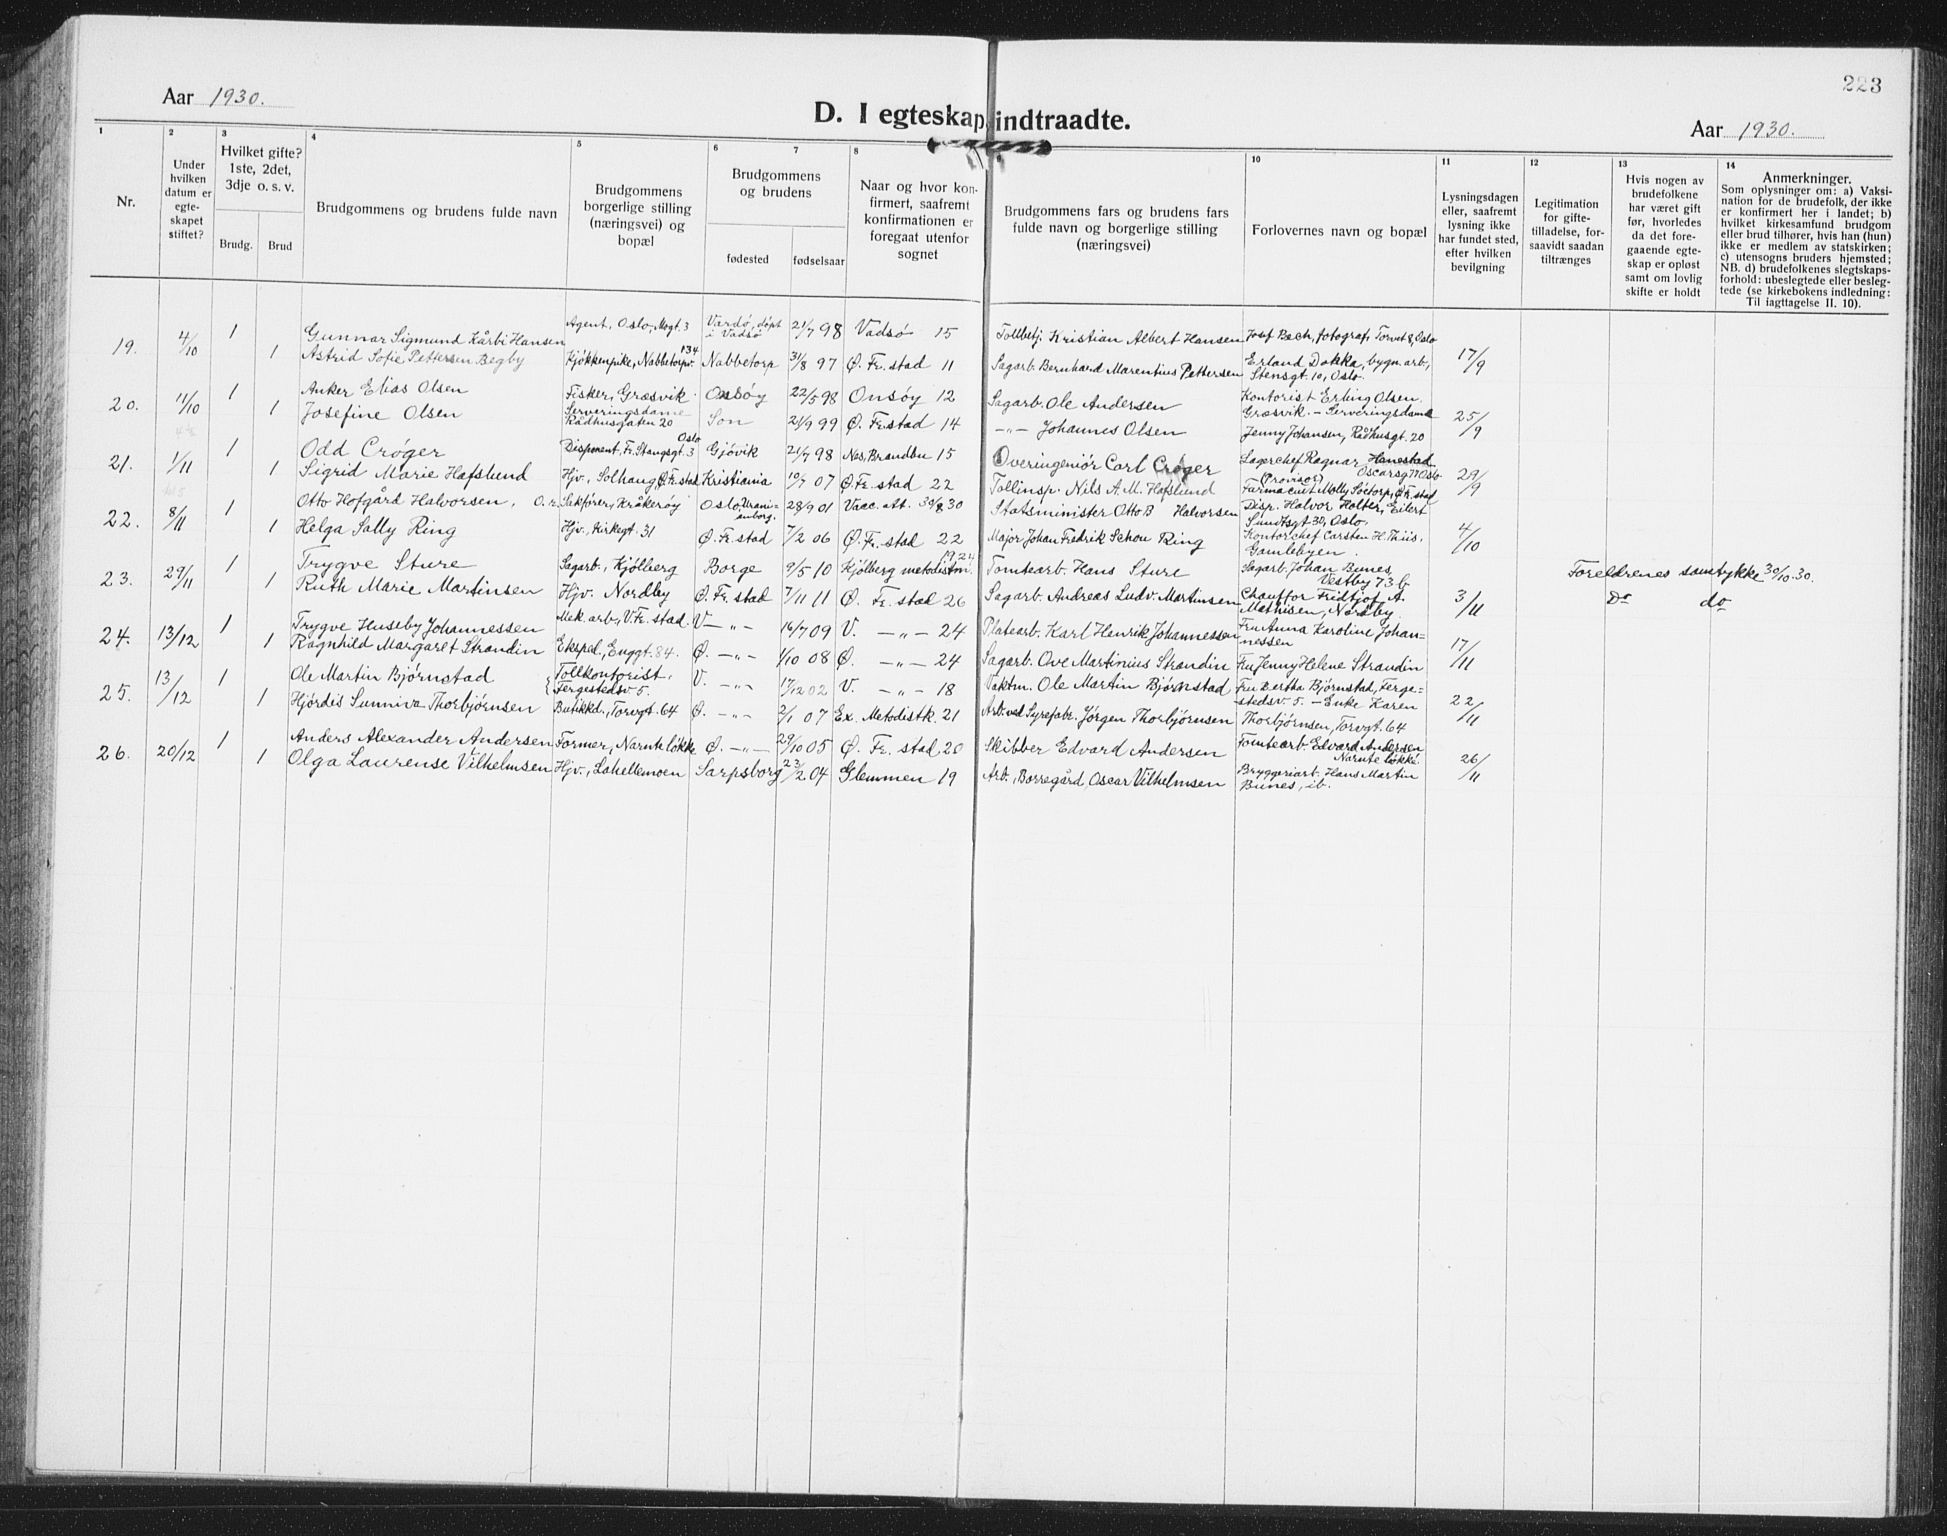 223
Aar 1930.
D. I egteskap indtraadte.
Aar 1930.
1 2 3 4 5 6 7 8 9 10 11 12 13 14
Nr.
Under hvilken datum er egte-skapet stiftet?
Hvilket gifte? 1ste, 2det, 3dje o. s. v.
Brudg. Brud
Brudgommens og brudens fulde navn
Brudgommens borgerlige stilling (næringsvei) og bopæl
Brudgommens og brudens
fødested fødselsaar
Naar og hvor kon-firmert, saafremt konfirmationen er foregaat utenfor sognet
Brudgommens fars og brudens fars fulde navn og borgerlige stilling (næringsvei)
Forlovernes navn og bopæl
Lysningsdagen eller, saafremt lysning ikke har fundet sted, efter hvilken bevilgning
Legitimation for gifte-tilladelse, for-saavidt saadan tiltrænges
Hvis nogen av brudefolkene har været gift før, hvorledes da det fore-gaaende egte-skap er opløst samt om lovlig skifte er holdt
Anmerkninger.
Som oplysninger om: a) Vaksi-nation for de brudefolk, der ikke er konfirmert her i landet; b) hvilket kirkesamfund brudgom eller brud tilhører, hvis han (hun) ikke er medlem av statskirken; c) utensogns bruders hjemsted; NB. d) brudefolkenes slegtskaps-forhold: ubeslegtede eller besleg-tede (se kirkebokens indledning: Til iagttagelse II. 10).
19. 4/10 1 Gunnar Sigmund Kårbi Hansen Agent, Oslo, Mogt. 3 Vardø, døpt i Vadsø 21/7 98 Vadsø 15 Tollbetj. Kristian Albert Hansen Josef Bach, fotograf, Torvet 8, Oslo
1 Astrid Sofie Pettersen Begby Kjøkkenpike, Nabbetorpv. 134 Nabbetorp 31/8 97 Ø. Fr.stad 11 Sagarb. Bernhard Marentius Pettersen Erland Dokka, bygn.arb., Stensgt. 10, Oslo. 17/9
20. 11/10 1 Anker Elias Olsen Fisker, Græsvik Onsøy 22/5 98 Onsøy 12 Sagarb. Ole Andersen Kontorist Erling Olsen. Græsvik. – Serveringsdame
1 Josefine Olsen Serveringsdame Rådhusgaten 20 Son 21/9 99 Ø. Fr.stad 14 –"– Johannes Olsen Jenny Johansen, Rådhusgt. 20 25/9
21. 1/11 1 Odd Crøger Disponent, Fr. Stangsgt. 3 Oslo Gjøvik 21/7 98 Nes, Brandbu 15 Overingeniør Carl Crøger Lagerchef Ragnar Hanestad Oscarsgt. Oslo
1 Sigrid Marie Hafslund Hjv., Solhaug, Ø. Fr.stad Kristiania 19/7 07 Ø. Fr.stad 22 Tollinsp. Nils A. M. Hafslund (Provisor) Farmaceut Molly Sørtorp, Ø. Fr.stad 29/9
22. 8/11 1 Otto Hofgård Halvorsen, O.r. Sakfører, Kråkerøy Oslo, Uranienborg. 28/9 01 Vacc. att. 30/8 30 Statsminister Otto B Halvorsen Disp. Halvor Holter, Eilert Sundtsgt. 30, Oslo.
1 Helga Sally Ring Hjv., Kirkegt. 31 Ø. Fr.stad 7/2 06 Ø. Fr.stad 22 Major Johan Fredrik Schou Ring Kontorchef Carsten H. Thiis, Gamlebyen. 4/10
23. 29/11 1 Trygve Sture Sagarb., Kjølberg Borge 9/5 10 Kjølberg metodistm. 1924 Tomtearb. Hans Sture Sagarb. Johan Bunes, Vestby 73 b. Foreldrenes samtykke 30/10 30.
1 Ruth Marie Martinsen Hjv. Nordby Ø. Fr. stad 7/11 11 Ø. Fr. stad 26 Sagarb. Andreas Ludv. Martinsen Chauffør Fridtjof A. Mathisen, Nordby 3/11 Do do
24. 13/12 1 Trygve Huseby Johannessen Mek. arb., V. Fr. stad. V –"– 16/7 09 V. –"– 24 Platearb. Karl Henrik Johannessen Fru Anna Karoline Johan=nessen
1 Ragnhild Margaret Strandin Ekspd., Enggt. 84. Ø. –"– 1/10 08 Ø. –"– 24 Sagarb. Ove Martinius Strandin Fru Jenny Helene Strandin 17/11
25. 13/12 1 Ole Martin Bjørnstad Tollkontorist, Fergestedsv 5. V. –"– 17/12 02 V. –"– 18 Vaktm. Ole Martin Bjørnstad Fru Bertha Bjørnstad, Ferge=stedsv. 5. – Enke Karen
1 Hjørdis Sunniva Thorbjørnsen Butikkd., Torvgt. 64 Ø. –"– 2/1 07 Ex. Metodistk. 21 Arb. ved Syrefabr. Jørgen Thorbjørnsen Thorbjørnsen, Torvgt. 64 22/11
26. 20/12 1 Anders Alexander Andersen Former, Narnteløkk. Ø. –"– 29/10 05 Ø. Fr. stad 20 Skibber Edvard Andersen Tomtearb. Edvard Andersen Narnteløkk.
1 Olga Laurense Vilhelmsen Hjv., Lahellemoen Sarpsborg 23/2 04 Glemmen 19 Arb., Borregård, Oscar Vilhelmsen Bryggeriarb. Hans Martin Bunes, ib. 26/11